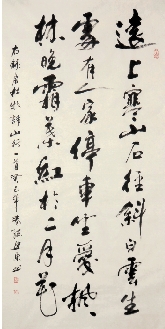 遠上寒山石徑斜白雲生
處有人家停車坐愛楓
林晚霜葉紅於二月花
杜牧詩山行一首